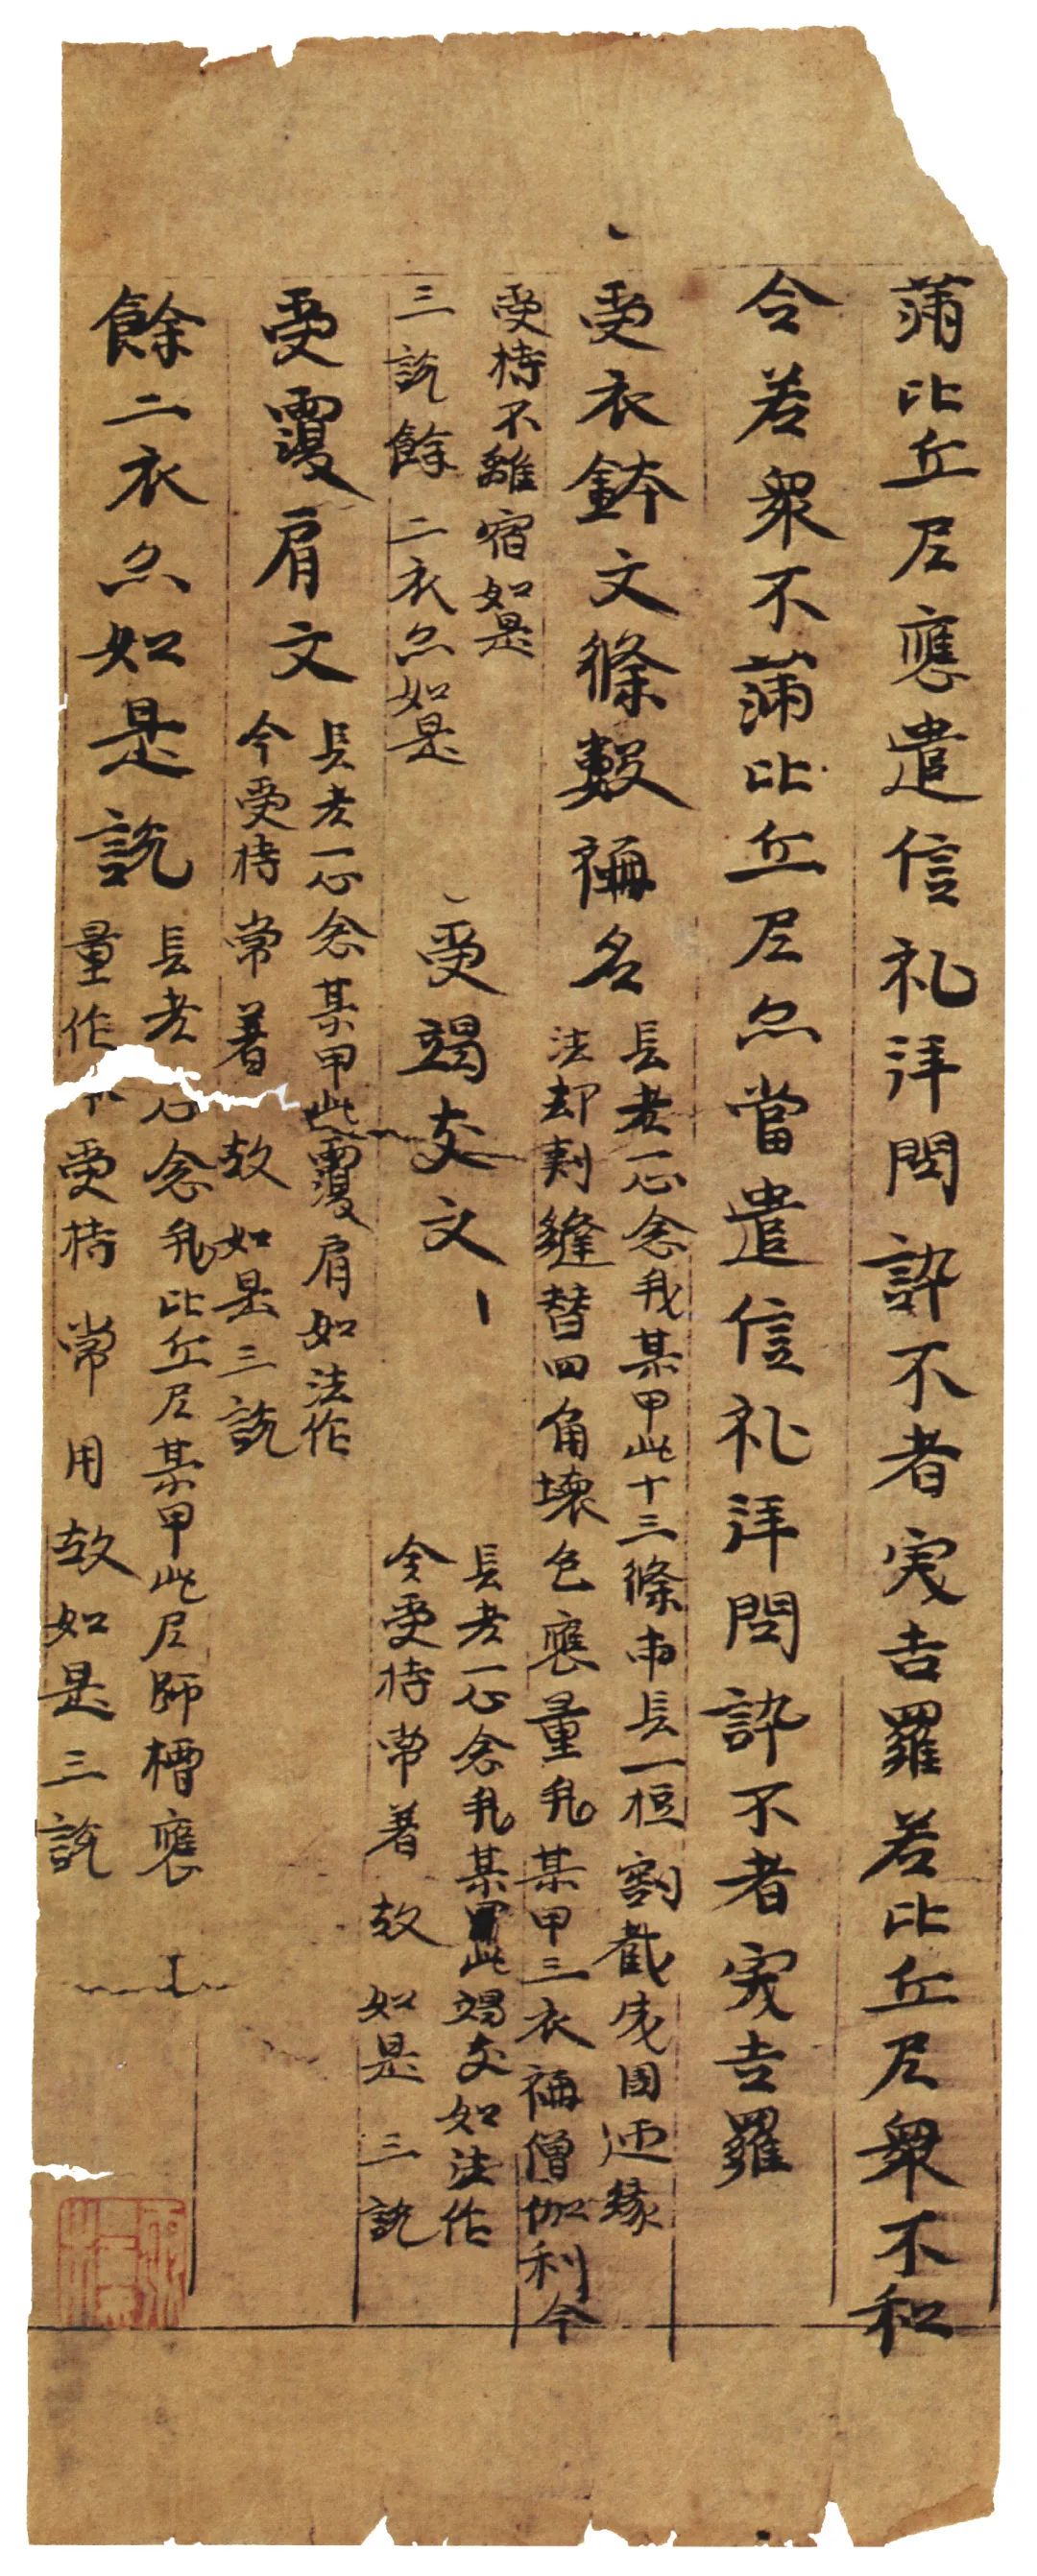 蒲比丘尼應遣信礼拜問訃不者突吉羅若比丘尼衆不和
合若衆不蒲比丘尼亦當遣信礼拜問訃不者突吉羅
受衣鉢文條數稱名
長老一心念我某甲此十三條兩長一短割截成周迊緣
法却刺縫替四角壞色應量我某甲三衣稱僧伽利今
受持不離宿如是
三說餘二衣亦如是
受竭支文
長老一心念我某甲此竭支如法作
今受持常著故如是三說
受覆肩文
長老一心念某甲此覆肩如法作
今受持常著故如是三說
餘二衣亦如是說
長老心念我比丘尼某甲此尼師檀應
量作受持常用故如是三說